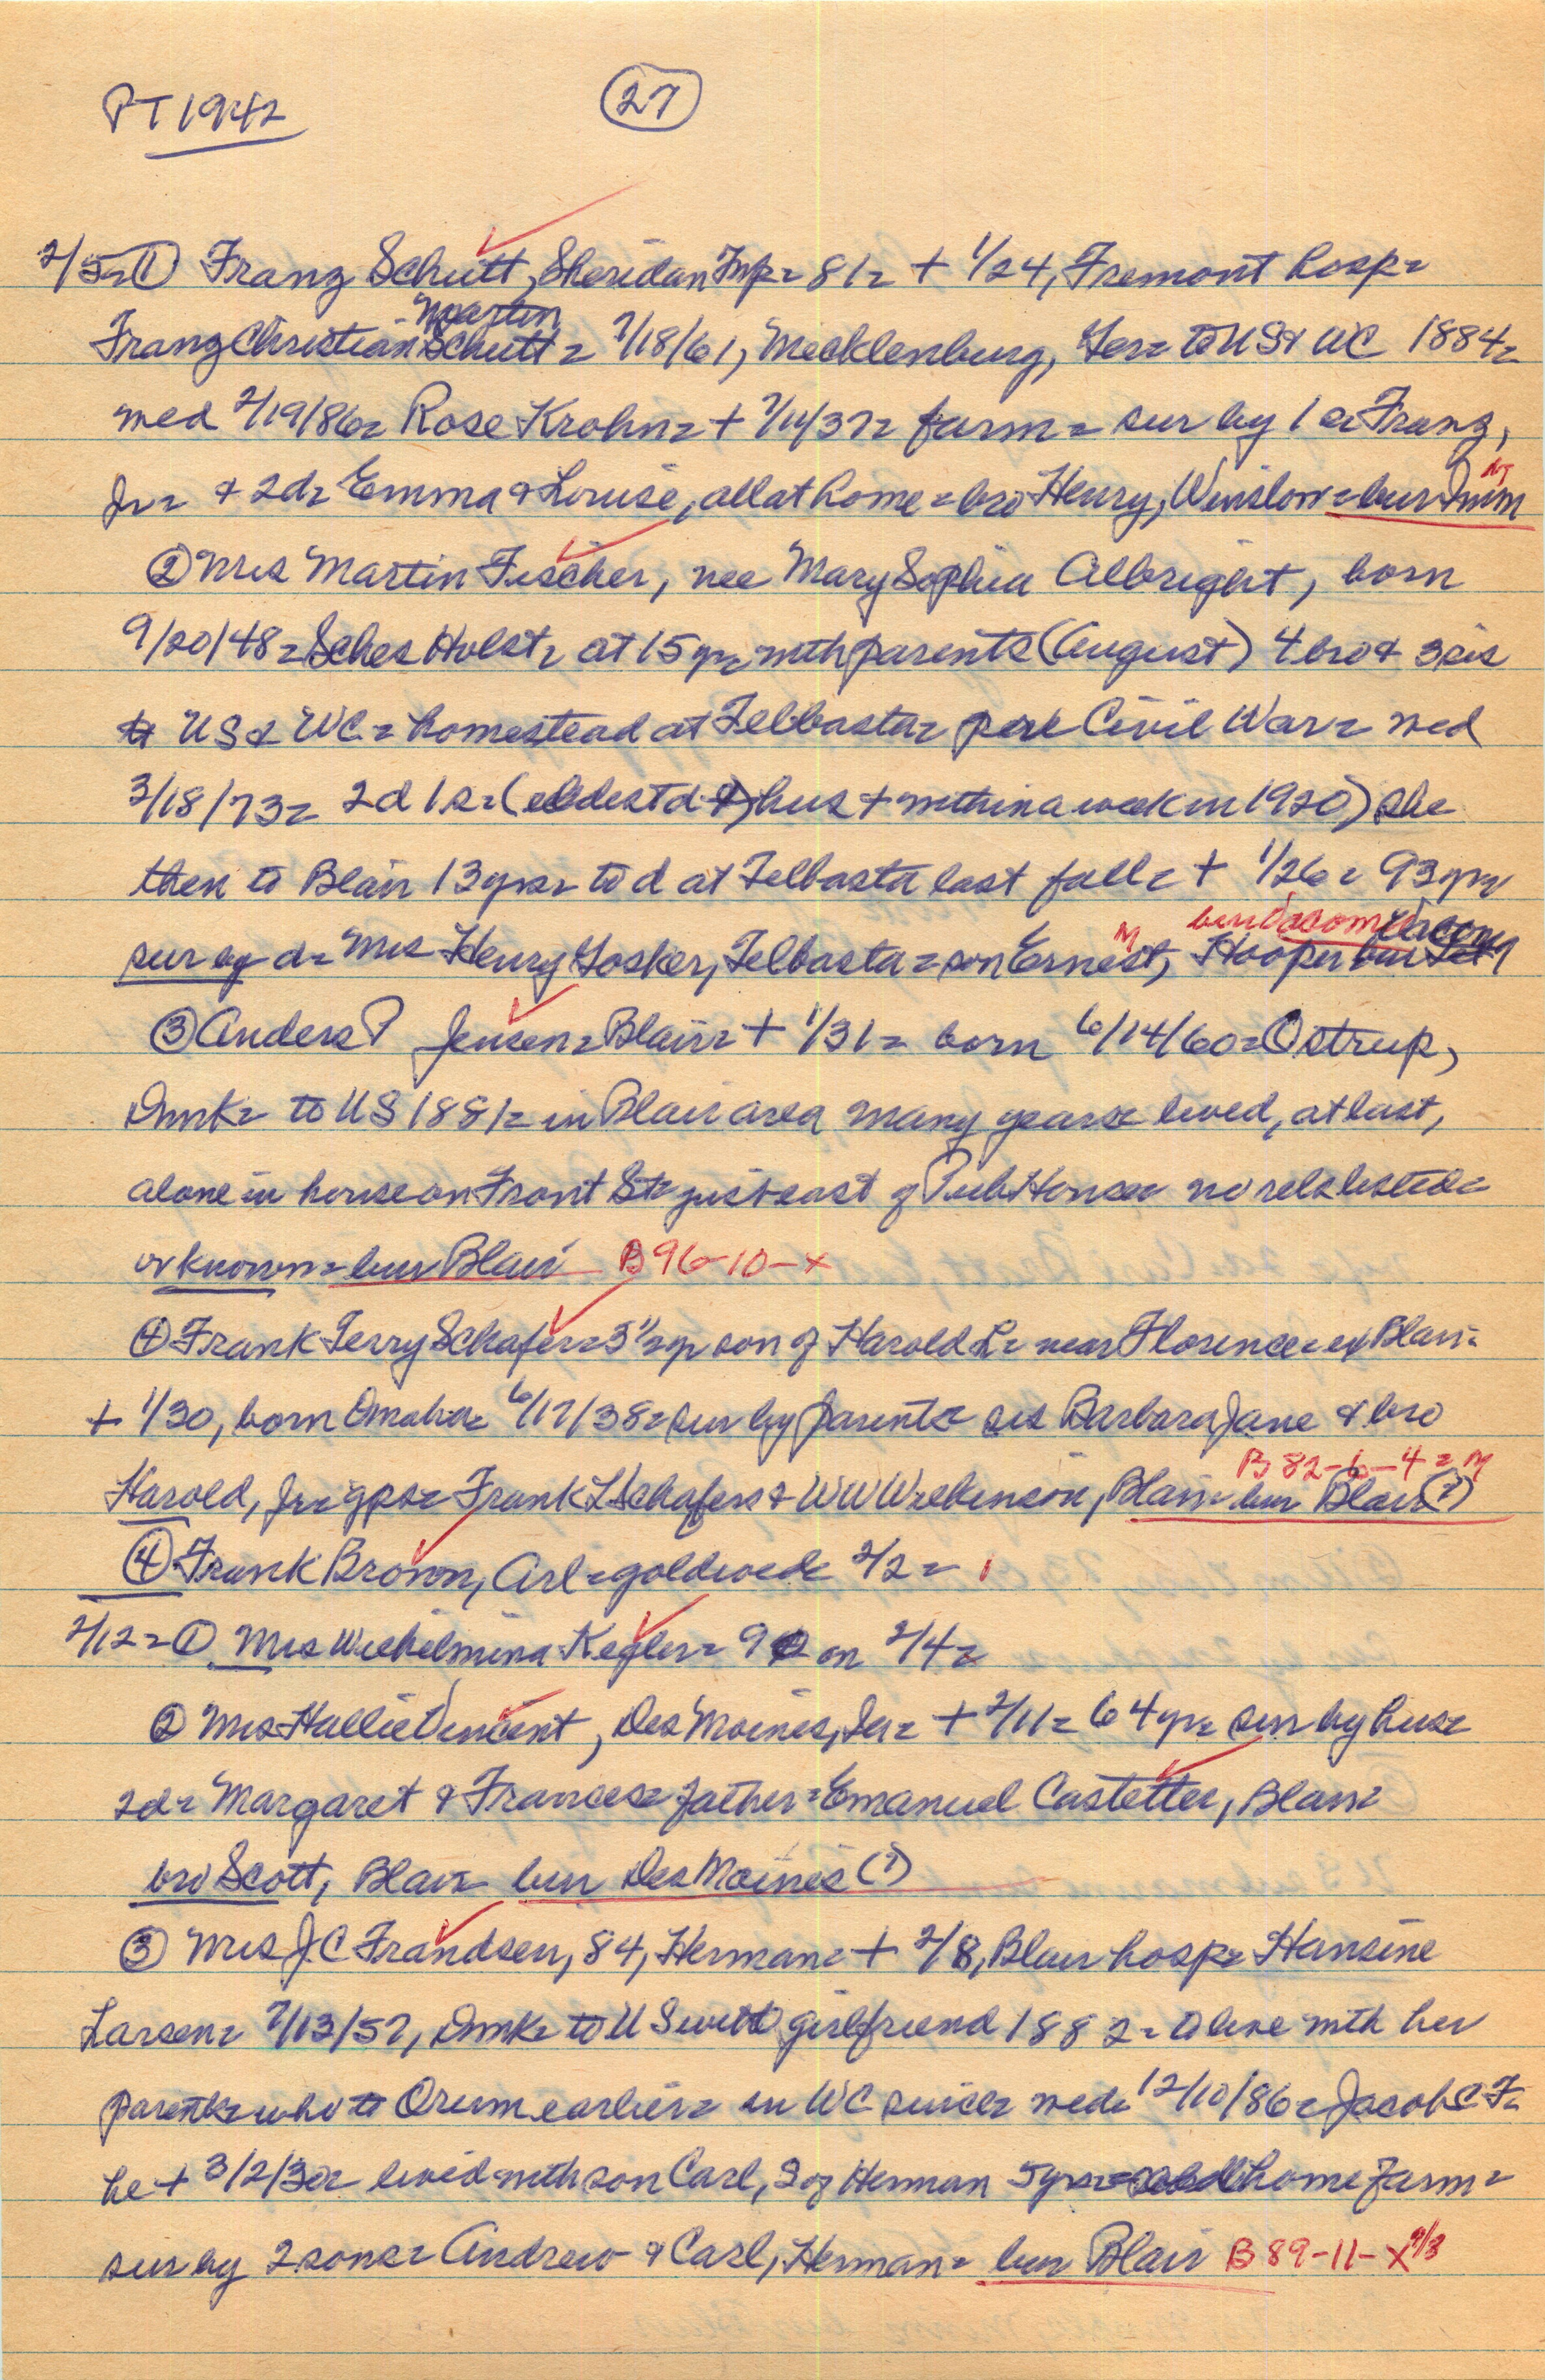 PT 1942
27
2/5 = ① Franz Schutt, Sheridan Twp = 81 = + 1/24, Fremont hosp =
Martin
Franz Christian Schutt = 7/18/61, Mecklenburg, Ger = to US & WC 1884 =
wed 2/19/86 = Rose Krohn = + 7/11/37 = farm = sur by 1 s = Franz,
Jr = & 2d = Emma & Louise, all at home = bro Henry, Winslow = bur
② Mrs Martin Fischer, nee Mary Sophia Albright, born
9/20/48 = Sches Holst, at 15 yr = with parents (August) 4 bro & 3 sis
to US & WC = homestead at Telbasta = post Civil War = wed
3/18/73 = 2d 1s = (eldest d & hus + within a week in 1920) she
then to Blair 13 yrs = to d at Telbasta last fall = + 1/26 = 93 yrs
bur Bacom
M
sur by d = Mrs Henry Gosker, Telbasta = son Ernest, Hooper bur
③ Anders P Jensen = Blair = + 1/31 = born 6/14/60 = Ostrup,
Dnmk = to US 1881 = in Blair area many years = lived, at last,
alone in house on Front St = just east of Pub House = no rels listed =
or known = bur Blair B 96-10-x
④ Frank Terry Schafer = 3 1/2 yr son of Harold L = near Florence = ex Blair =
+ 1/30, born Omaha = 6/17/38 = sur by parents = sis Barbara Jane & bro
B 82-6-4 = M
Harold, Jr = gps = Frank L Schafers & WW Wilkinson, Blair = bur Blair (?)
④ Frank Brown, Arl = gold wed = 2/2 =
2/12 = ① Mrs Wilhelmina Kegler = 92 on 2/4 =
② Mrs Hallie Vincent, Des Moines, Ia = + 2/11 = 64 yr = sur by hus =
2d = Margaret & Frances = father = Emanuel Castetter, Blair =
bro Scott, Blair = bur Des Moines (?)
③ Mrs J C Frandsen, 84, Herman = + 2/8, Blair hosp = Hansine
Larsen = 7/13/57, Dnmk = to US with girlfriend 1882 = to live with her
parents = who to Orum earlier = in WC since = wed = 12/10/86 = Jacob C F =
he + 3/2/30 = lived with son Carl, S of Herman 5 yrs = home farm =
sur by 2 sons = Andrew & Carl, Herman = bur Blair B 89-11-x 2/3